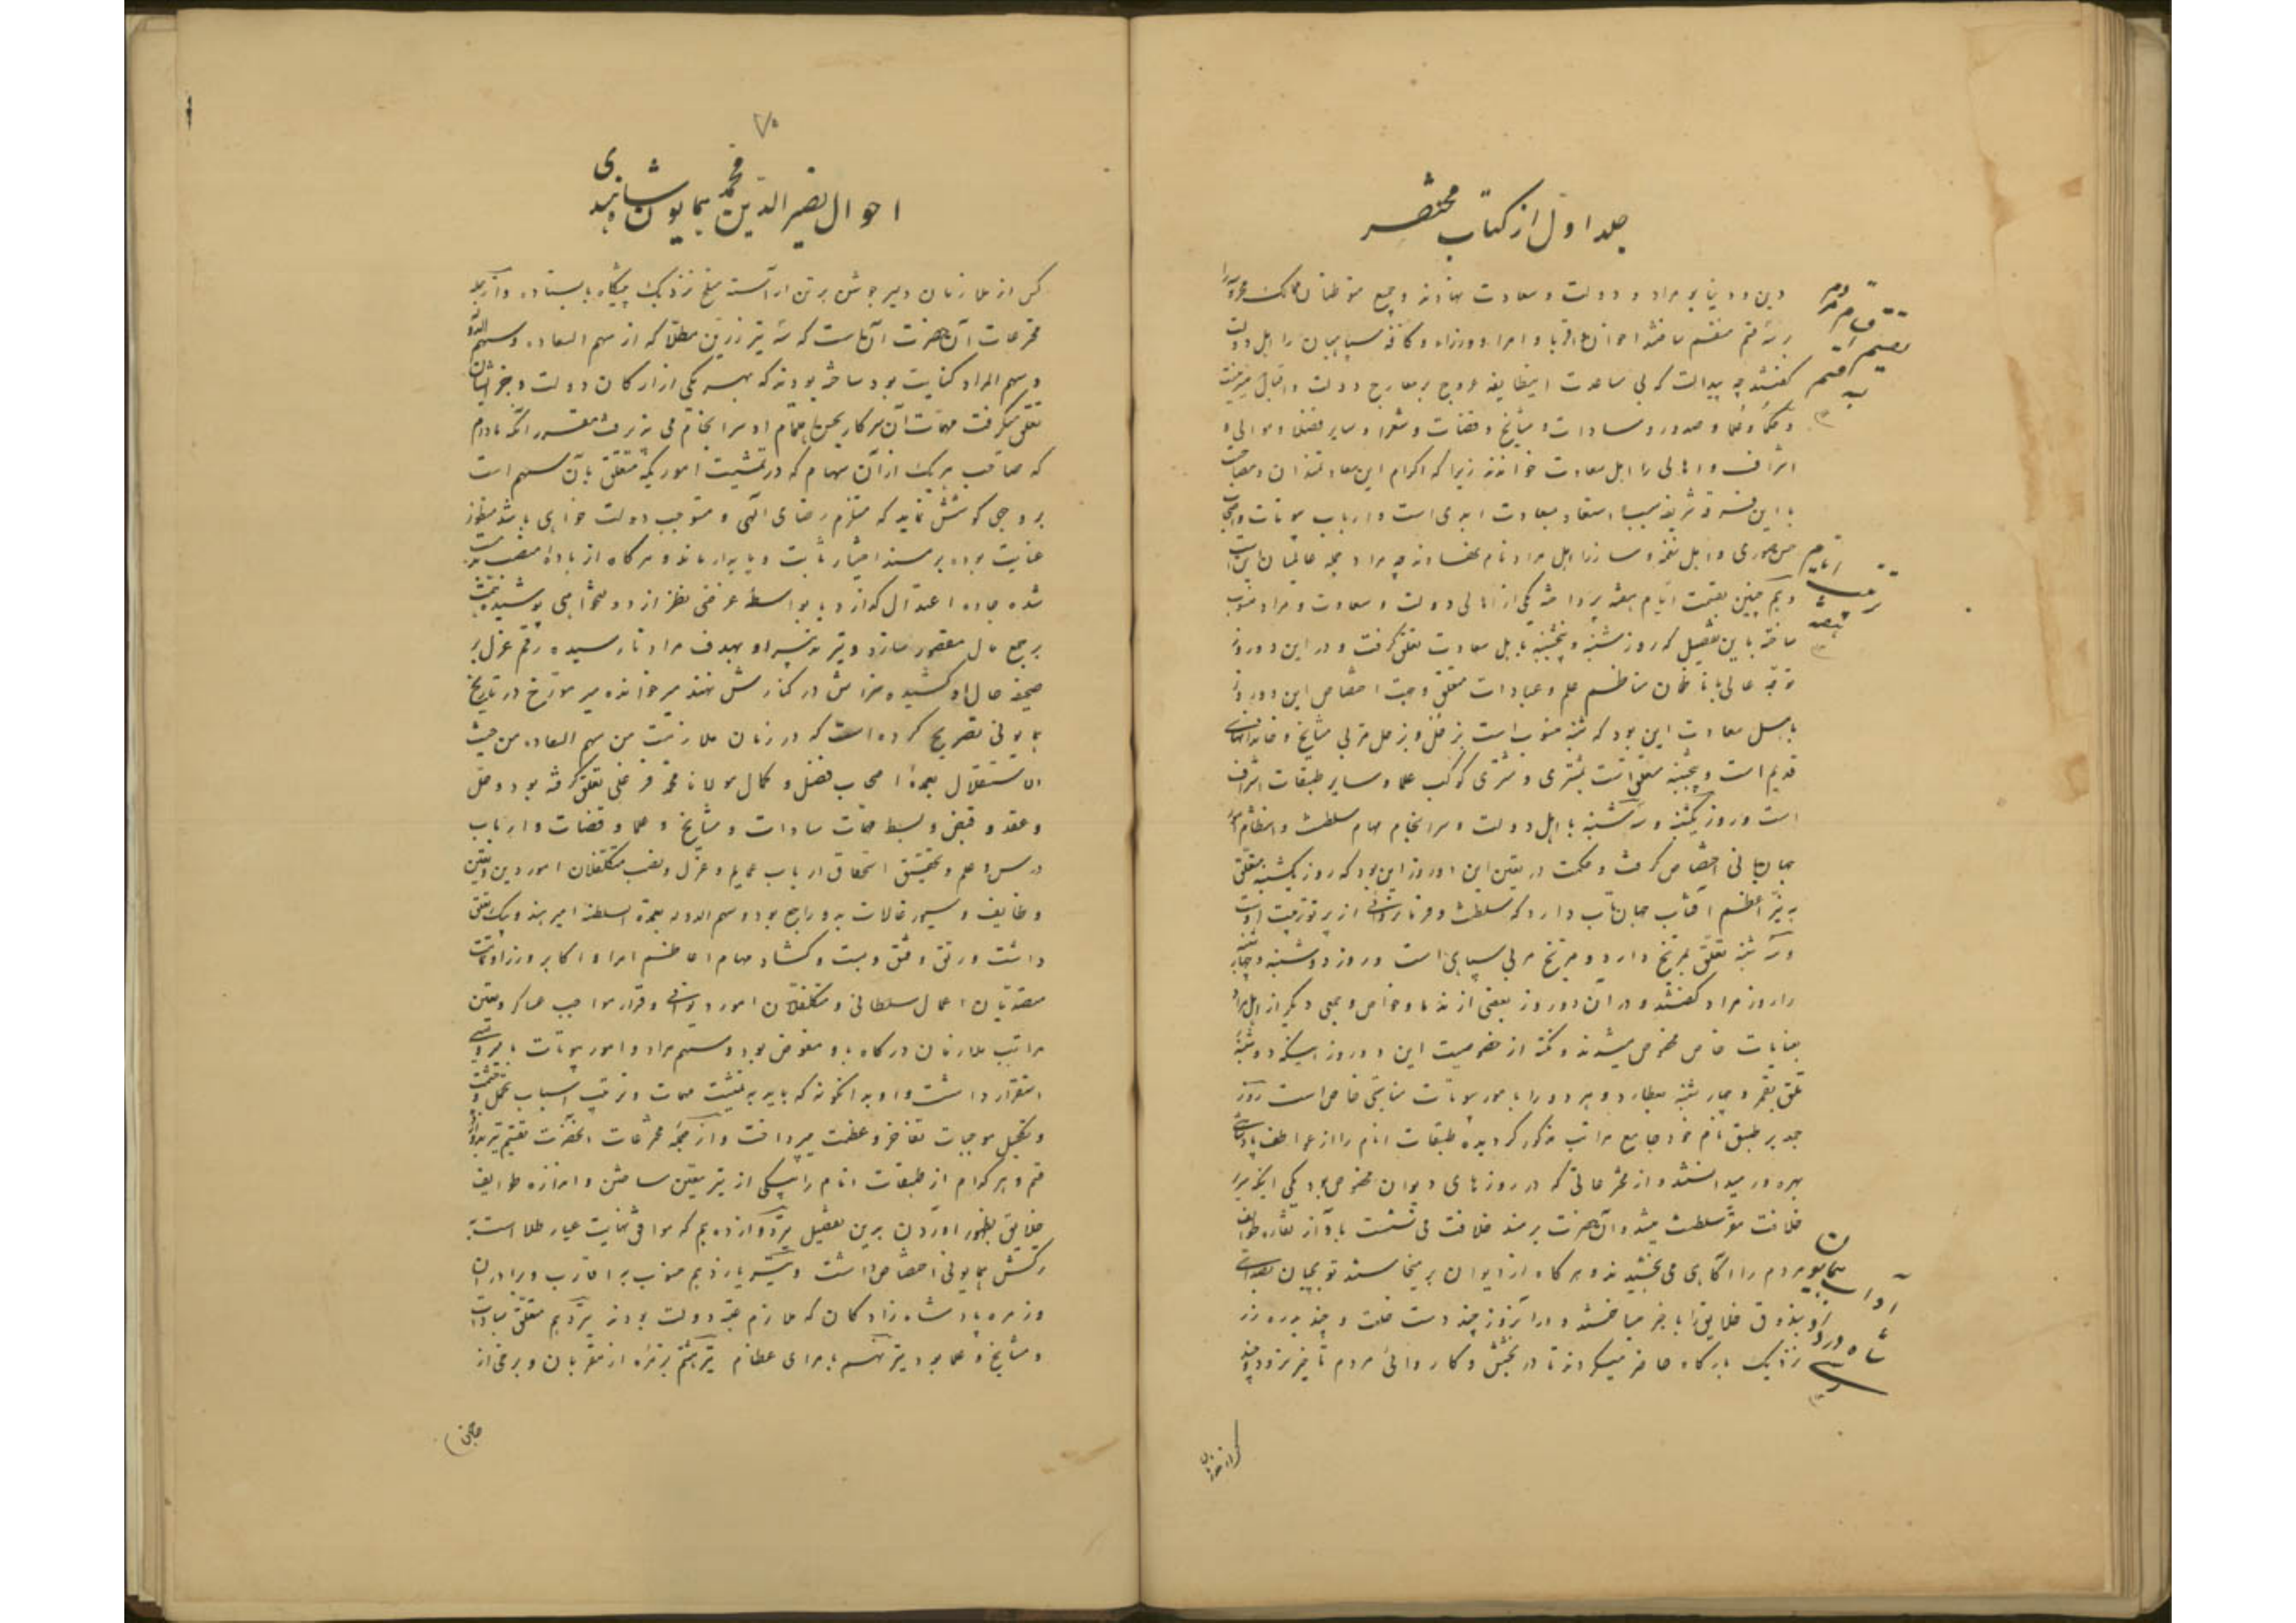 جلد اول از کتاب مختصر
دین و دنیا بر مراد و دولت و سعادت نهادند و جمیع متوطنان ممالک محروسه را
بر سه قسم منقسم ساختند اخوان و اقربا و امرا و وزرا و کافه سپاهیان را اهل دولت
گفتند چه پیداست که بی مساعدت این طایفه عروج بر معارج دولت و اقبال میسر نیست
و حکما و علما و صدور و سادات و مشایخ و قضات و شعرا و سایر فضلا و موالی و
اشراف و اهالی را اهل سعادت خواندند زیرا که اکرام این سعادتمندان و مصاحبت
با این فرقه شریفه سبب استعاد سعادت ابدی است و ارباب بیوتات و اصحاب
حسن صوری و اهل نغمه و ساز را اهل مراد نام نهادند چه مراد جمله عالمیان این است
و هم چنین بقسمت ایام هفته پرداخته یکی از اهالی دولت و سعادت و مراد منسوب
ساخته باین تفصیل که روز شنبه و پنجشنبه باهل سعادت تعلق گرفت و در این دو روز
توجه عالی بانتظام مناظم علم و عبادات متعلق وجهت اختصاص این دو روز
باهل سعادت این بود که شنبه منسوب است بزحل و زحل مربی مشایخ و خاندانهای
قدیم است و پنجشنبه متعلق است بمشتری و مشتری کوکب علما و سایر طبقات اشراف
است و روز یکشنبه و سه شنبه باهل دولت و سرانجام مهام سلطنت و انتظام امور
جهانبانی اختصاص گرفت و حکمت در تعیین این دو روز این بود که روز یکشنبه متعلق
به نیر اعظم آفتاب جهان تاب دارد که سلطنت و فرمانروائی از پرتو تربیت اوست
و سه شنبه تعلق بمریخ دارد و مریخ مربی سپاهی است و روز دوشنبه و چهارشنبه
را روز مراد گفتند و در آن دو روز بعضی از ندما و خواص و جمعی دیگر از اهل مراد
بعنایات خاص مخصوص میشدند و نکته از خصوصیت این دو روز اینکه دوشنبه
تعلق بقمر و چهارشنبه بعطارد و هر دو را بامور بیوتات مناسبتی خاص است و روز
جمعه بر طبق نام خود جامع مراتب مذکور گردیده طبقات انام را از عواطف پادشاهی
بهره ور میدانستند و از مخترعاتی که در روزهای دیوان مخصوص بود یکی اینکه سریر
خلافت مقر سلطنت میشد و آن حضرت بر مسند خلافت می نشست باواز نقاره طوایف
مردم را آگاهی می بخشیدند و هر گاه از دیوان بر میخاستند توپچیان بصدای
بندوق خلایق را با خبر میساختند و در آن روز چند دست خلعت و چند بدره زر
نزدیک بارگاه حاضر میکردند تا در بخشش و کار روائی مردم تاخیر نرود و چند
تقسیم اقوام مردم به سه قسم
ترتیب ایام هفته
آداب همایون شاه
۷۰
احوال نصیر الدین محمد همایون شاه
کس از ملازمان دلیر جوشن بر تن آراسته مسلح نزدیک پیشگاه بایستاده و از جمله
مخترعات آن حضرت آن است که سه تیر زرین مطلا که از سهم السعاده و سهم الدوله
و سهم المراد کنایت بود ساخته بودند که بهر یکی از ارکان دولت و جز ایشان
تعلق میگرفت مهمات آن سرکار بحسن اهتمام او سرانجام می پذیرفت مقرر آنکه مادام
که صاحب هر یک از آن سهام که در تمشیت امور یکه متعلق بآن سهم است
بر وجهی کوشش نماید که مستلزم رضای الهی و مستوجب دولت خواهی باشد منظور
عنایت بوده بر مسند اختیار ثابت و پایدار ماند و هر گاه از باده منصب مست
شده جاده اعتدال گذارد یا بواسطه غرضی نظر از دولتخواهی پوشیده همت
بر جمع مال مقصور سازد و تیر تدبیر او بهدف مراد نارسیده رقم عزل بر
صحیفه حال او کشیده سزایش در کنارش نهند میر خواند میر مورخ در تاریخ
همایونی تصریح کرده است که در زمان ملازمت من سهم السعاده من حیث
الاستقلال بعمده اصحاب فضل و کمال مولانا محمد فرغلی تعلق گرفته بود و حل
و عقد و قبض و بسط مهمات سادات و مشایخ و علما و قضات و ارباب
درس و علم و تحقیق استحقاق ارباب عمایم و عزل و نصب متکفلان امور دین و تعیین
وظایف و سیورغالات بدو راجع بود و سهم الدوله بعمدة السلطنه امیر هندو بیک تعلق
داشت و رتق و فتق و بست و گشاد مهام اعاظم امرا و اکابر وزرا و تمامت
متصدیان اعمال سلطانی و متکفلان امور دیوانی و قرار مواجب عساکر و تعیین
مراتب ملازمان درگاه باو مفوض بود و سهم مراد و امور بیوتات بامیر ویسی
استقرار داشت و او به آنگونه که باید به تمشیت مهمات و ترتیب اسباب تجمل و حشمت
و تکمیل موجبات تفاخر و عظمت میپرداخت و از جمله مخترعات آنحضرت تقسیم تیر بدوازده
قسم و هر کدام از طبقات انام را بیکی از تیر تعیین ساختن و اندازه طوایف
خلایق بظهور آوردن برین تفصیل تیر دوازدهم که موافق نهایت عیار طلا است
ترکش همایونی اختصاص داشت و تیر یازدهم منسوب بر اقارب و برادران
و زمره پادشاه زادگان که ملازم عتبه دولت بودند تیر دهم متعلق بسادات
و مشایخ و علما بود تیر نهم بامرای عظام تیر هشتم بزمره از مقربان و برخی از